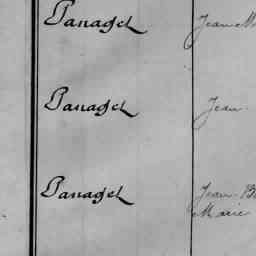 Panagel Jean M
Panagel Jean
Panagel Jean B
Marie